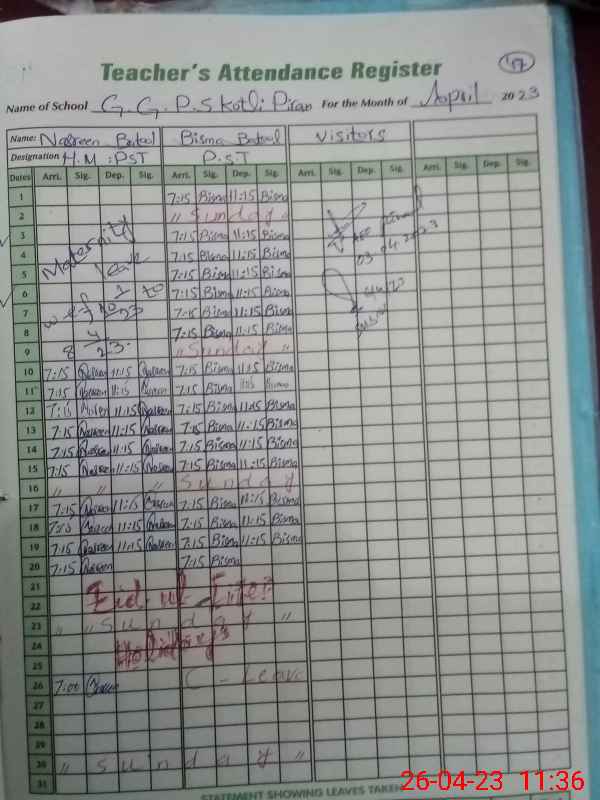 17
Teacher's Attendance Register
Name of School G.G.P.S Kotli Piran For the Month of April 2023
Name: Nasreen Batool Bisma Batool Visitors
Designation H.M : PST P.S.T
Dates Arri. Sig. Dep. Sig. Arri. Sig. Dep. Sig. Arri. Sig. Dep. Sig. Arri. Sig. Dep. Sig.
1 7:15 Bisma 11:15 Bisma
2 " Sunday
3 7:15 Bisma 11:15 Bisma
Maternity
03.04.2023
4 7:15 Bisma 11:15 Bisma
leave
5 7:15 Bisma 11:15 Bisma
6 7:15 Bisma 11:15 Bisma
7 7:15 Bisma 11:15 Bisma
8 7:15 Bisma 11:15 Bisma
9 " Sunday "
10 7:15 Nasreen 11:15 Nasreen 7:15 Bisma 11:15 Bisma
11 7:15 Nasreen 11:15 Nasreen 7:15 Bisma 11:15 Bisma
12 7:15 Nasreen 11:15 Nasreen 7:15 Bisma 11:15 Bisma
13 7:15 Nasreen 11:15 Nasreen 7:15 Bisma 11:15 Bisma
14 7:15 Nasreen 11:15 Nasreen 7:15 Bisma 11:15 Bisma
15 7:15 Nasreen 11:15 Nasreen 7:15 Bisma 11:15 Bisma
16 " " " Sunday
17 7:15 Nasreen 11:15 Nasreen 7:15 Bisma 11:15 Bisma
18 7:15 Nasreen 11:15 Nasreen 7:15 Bisma 11:15 Bisma
19 7:15 Nasreen 11:15 Nasreen 7:15 Bisma 11:15 Bisma
20 7:15 Nasreen 7:15 Bisma
21
Eid-ul-Fiter
22
23 " " Sunday "
24 Holidays
25
26 7:00 Nasreen C-Leave
27
28
29
30 " Sunday "
31
STATEMENT SHOWING LEAVES TAKEN
26-04-23 11:36